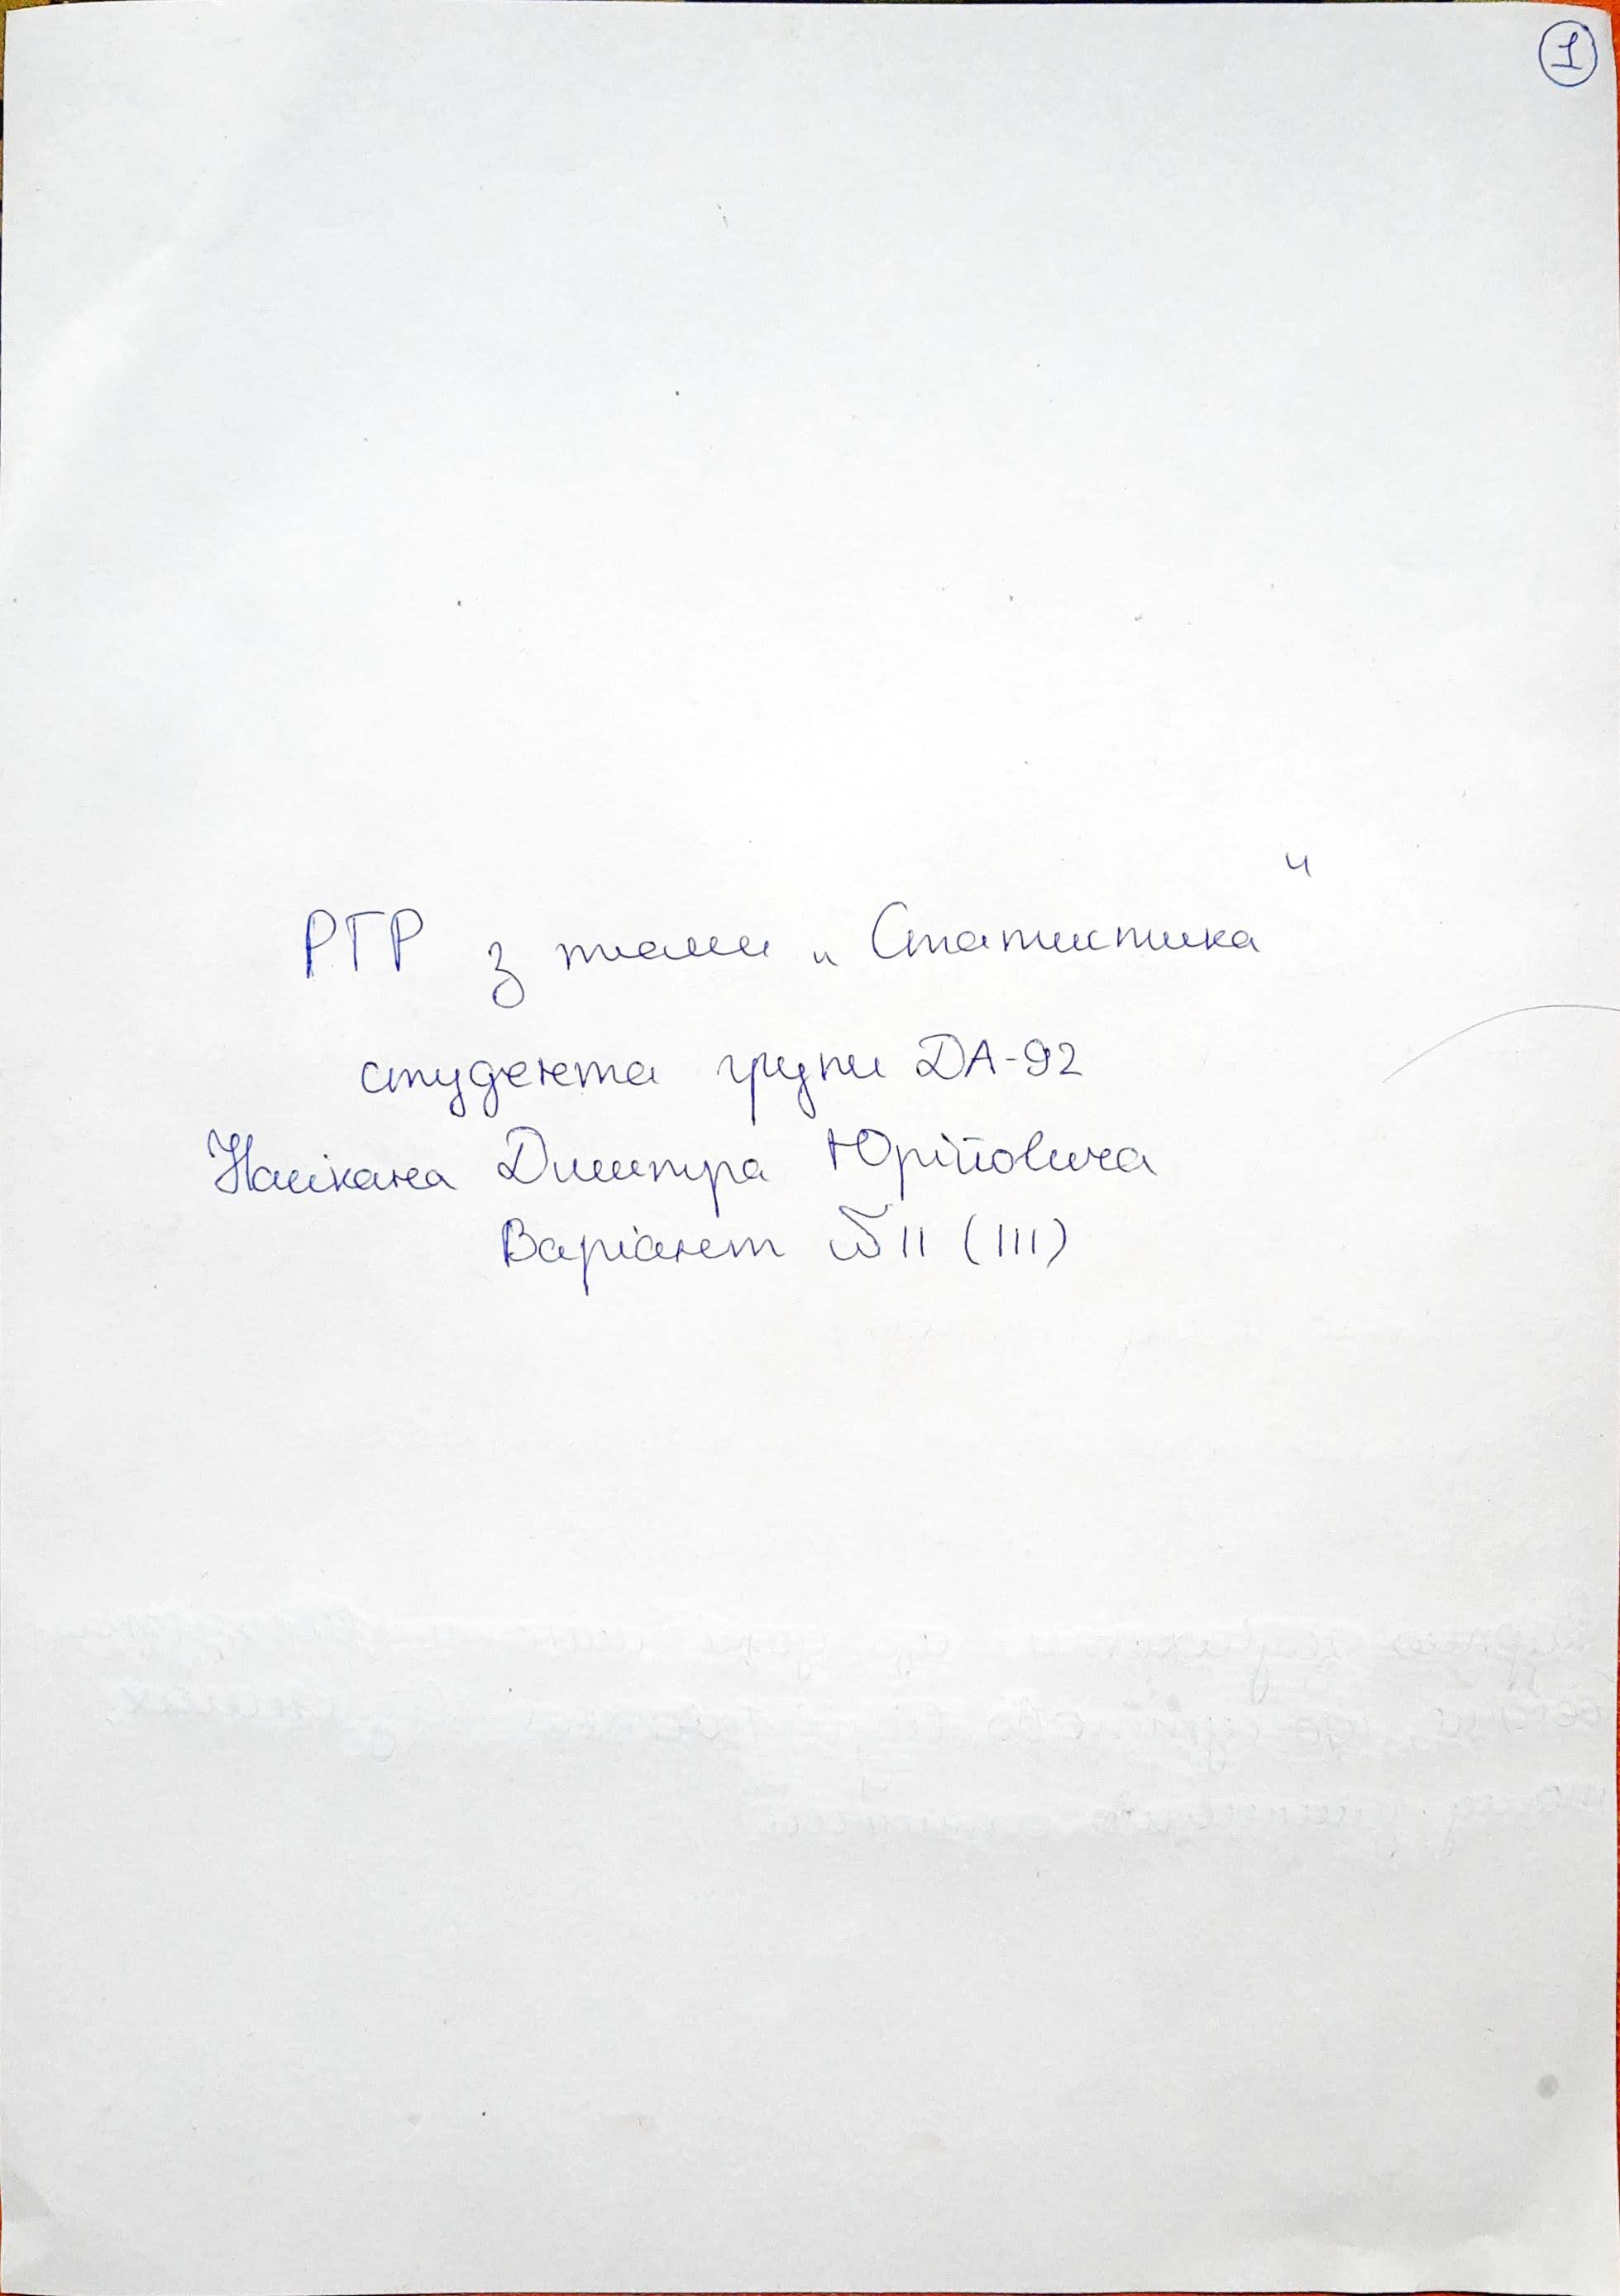 1
РГР з теми „Статистика"
студента групи ДА-92
Дмитра Юрійовича
Варіант №11 (111)